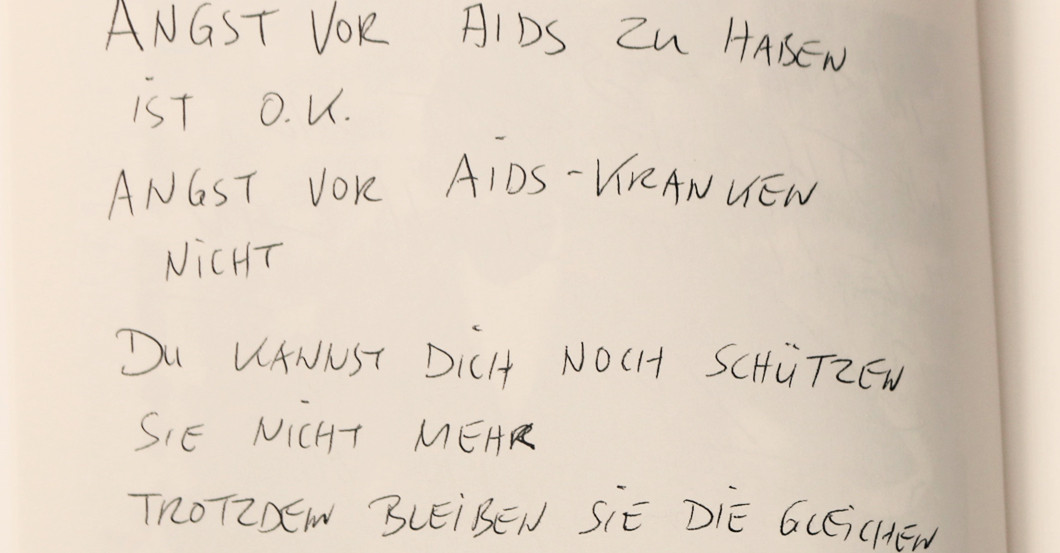 ANGST VOR AIDS ZU HABEN
IST O.K.
ANGST VOR AIDS-KRANKEN
NICHT
DU KANNST DICH NOCH SCHÜTZEN
SIE NICHT MEHR
TROTZDEM BLEIBEN SIE DIE GLEICHEN